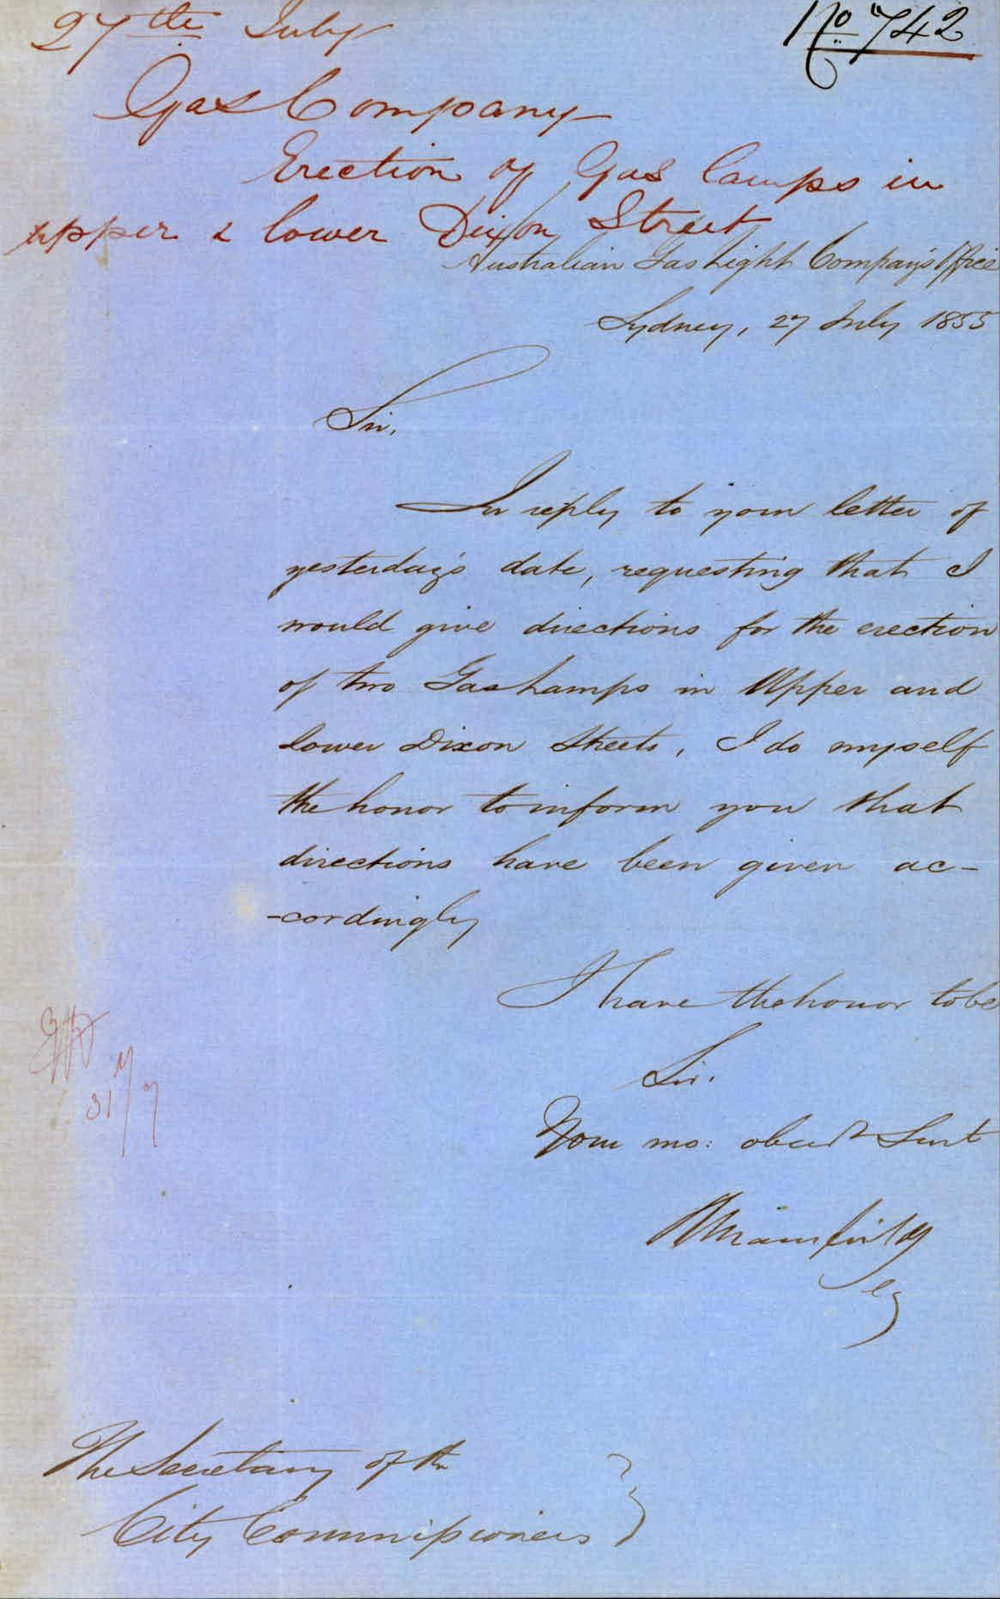 27th July
No 742
Gas Company
Erection of Gas Lamps in
upper & lower Dixon Street
Australian Gas Light Company's Office
Sydney, 27 July 1855
Sir,
In reply to your letter of
yesterday's date, requesting that I
would give directions for the erection
of two Gas Lamps in Upper and
Lower Dixon Streets, I do myself
the honor to inform you that
directions have been given ac-
-cordingly
I have the honor to be
31/7
Sir.
Your mo: obedt Servt
RMansfield
Sy
The Secretary of the
City Commissioners